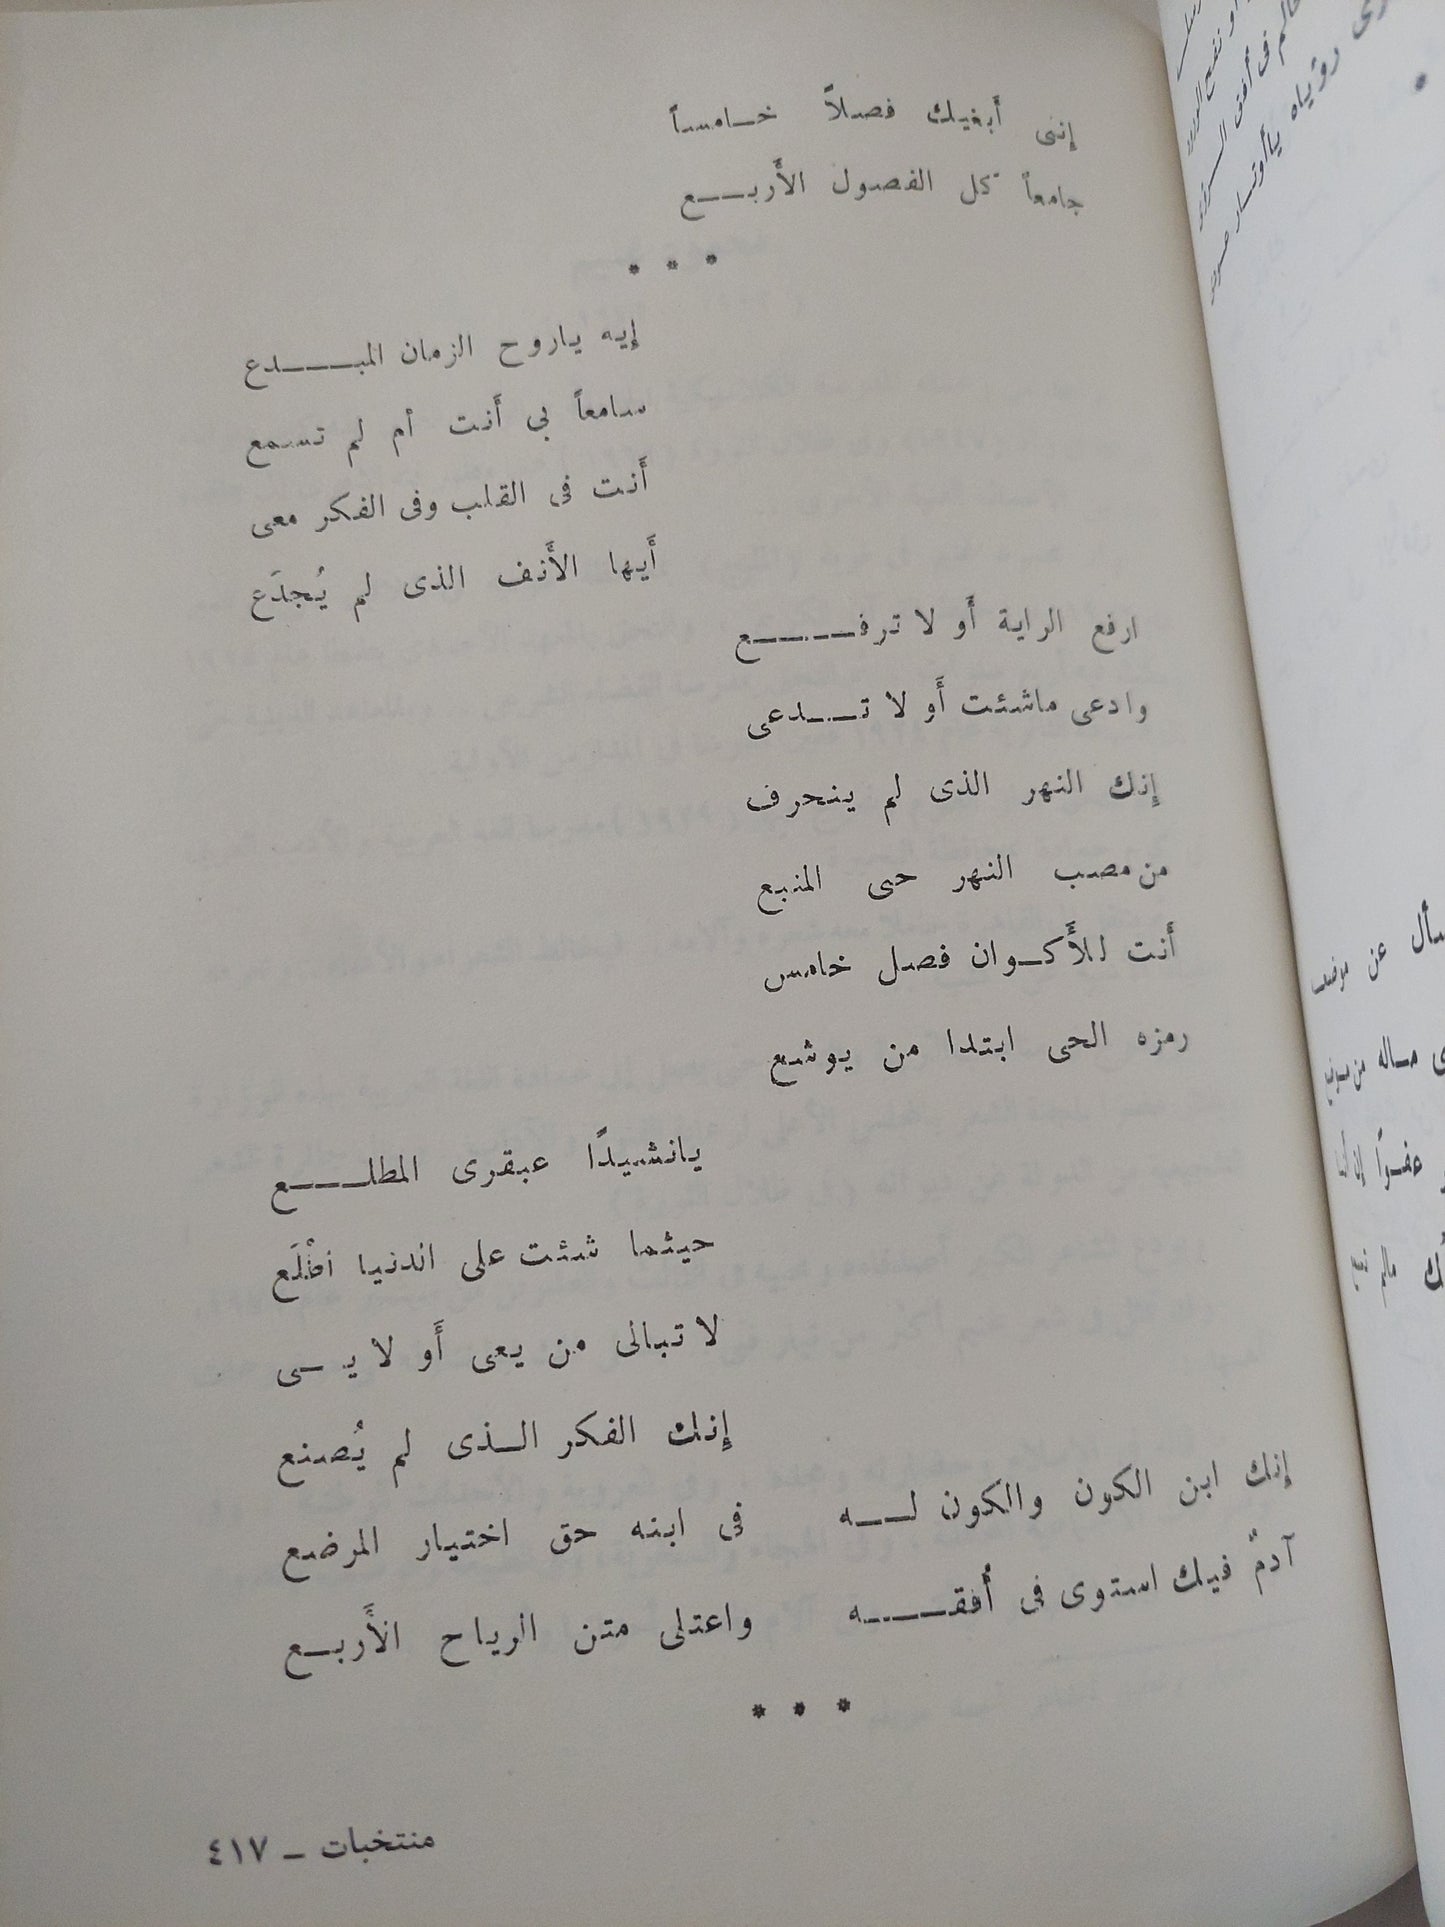 إننى أبغيك فصلاً خامساً
جامعاً كل الفصول الأربع
* * *
إيه ياروح الزمان المبدع
سامعاً بى أنت أم لم تسمع
أنت فى القلب وفى الفكر معى
أيها الأنف الذى لم يُجدَع
ارفع الراية أو لا ترفع
وادعى ماشئت أو لا تدعى
إنك النهر الذى لم ينحرف
من مصب النهر حتى المنبع
أنت للأكوان فصل خامس
رمزه الحى ابتدا من يوشع
يانشيدًا عبقرى المطلع
حيثما شئت على الدنيا اطْلَع
لا تبالى من يعى أو لا يعى
إنك الفكر الذى لم يُصنع
إنك ابن الكون والكون له فى ابنه حق اختيار المرضع
آدمٌ فيك استوى فى أُفقه واعتلى متن الرياح الأربع
* * *
منتخبات – ٤١٧